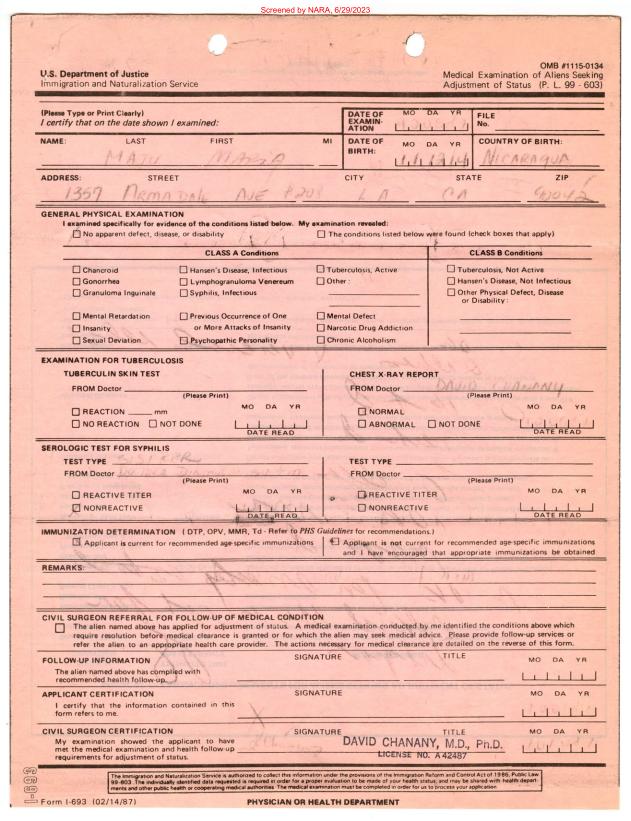 Screened by NARA, 6/29/2023
OMB #1115-0134
U.S. Department of Justice
Immigration and Naturalization Service
Medical Examination of Aliens Seeking
Adjustment of Status (P. L. 99 - 603)
(Please Type or Print Clearly)
I certify that on the date shown I examined:
DATE OF EXAMINATION MO DA YR
FILE No.
NAME: LAST FIRST MI
MARIA
DATE OF BIRTH: MO DA YR
COUNTRY OF BIRTH:
NICARAGUA
ADDRESS: STREET CITY STATE ZIP
1357 AVE LA CA
GENERAL PHYSICAL EXAMINATION
I examined specifically for evidence of the conditions listed below. My examination revealed:
No apparent defect, disease, or disability The conditions listed below were found (check boxes that apply)
CLASS A Conditions CLASS B Conditions
Chancroid Hansen's Disease, Infectious Tuberculosis, Active Tuberculosis, Not Active
Gonorrhea Lymphogranuloma Venereum Other: Hansen's Disease, Not Infectious
Granuloma Inguinale Syphilis, Infectious Other Physical Defect, Disease
or Disability:
Mental Retardation Previous Occurrence of One Mental Defect
Insanity or More Attacks of Insanity Narcotic Drug Addiction
Sexual Deviation Psychopathic Personality Chronic Alcoholism
EXAMINATION FOR TUBERCULOSIS
TUBERCULIN SKIN TEST CHEST X-RAY REPORT
FROM Doctor FROM Doctor DAVID CHANANY
(Please Print) (Please Print)
REACTION mm MO DA YR NORMAL MO DA YR
NO REACTION NOT DONE ABNORMAL NOT DONE
DATE READ DATE READ
SEROLOGIC TEST FOR SYPHILIS
TEST TYPE TEST TYPE
FROM Doctor FROM Doctor
(Please Print) (Please Print)
REACTIVE TITER MO DA YR REACTIVE TITER MO DA YR
NONREACTIVE NONREACTIVE
DATE READ DATE READ
IMMUNIZATION DETERMINATION (DTP, OPV, MMR, Td - Refer to PHS Guidelines for recommendations.)
Applicant is current for recommended age-specific immunizations Applicant is not current for recommended age-specific immunizations
and I have encouraged that appropriate immunizations be obtained
REMARKS:
CIVIL SURGEON REFERRAL FOR FOLLOW-UP OF MEDICAL CONDITION
The alien named above has applied for adjustment of status. A medical examination conducted by me identified the conditions above which
require resolution before medical clearance is granted or for which the alien may seek medical advice. Please provide follow-up services or
refer the alien to an appropriate health care provider. The actions necessary for medical clearance are detailed on the reverse of this form.
FOLLOW-UP INFORMATION SIGNATURE TITLE MO DA YR
The alien named above has complied with
recommended health follow-up.
APPLICANT CERTIFICATION SIGNATURE MO DA YR
I certify that the information contained in this
form refers to me. X
CIVIL SURGEON CERTIFICATION SIGNATURE TITLE MO DA YR
My examination showed the applicant to have
met the medical examination and health follow-up
requirements for adjustment of status.
DAVID CHANANY, M.D., Ph.D.
LICENSE NO. A42487
The Immigration and Naturalization Service is authorized to collect this information under the provisions of the Immigration Reform and Control Act of 1986, Public Law
99-603. The individually identified data requested is required in order for a proper evaluation to be made of your health status; and may be shared with health departments and other public health or cooperating medical authorities. The medical examination must be completed in order for us to process your application.
Form I-693 (02/14/87) PHYSICIAN OR HEALTH DEPARTMENT